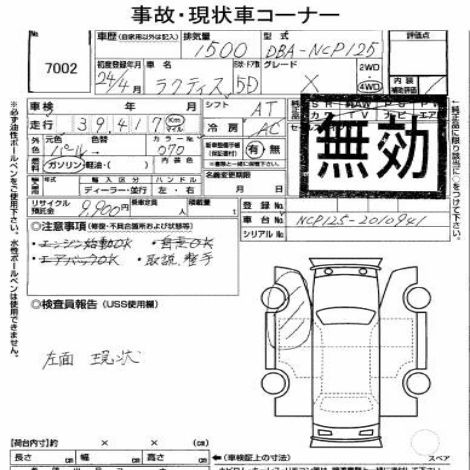 事故・現状車コーナー
7002
車歴 (自家用以外は記入) 排気量 型式 評価点
1500 DBA-NCP125
初度登録年月 車名 グレード 2WD
24/4月 ラクティス 5D X 4WD 内装 補助評価
車検 年 月 シフト AT
走行 39,417 Km マイル 冷房 AC
無効
外装 元色 色替 カラーNo.
パール 070
新車整備手帳 (保証書付) 有・無
燃料 ガソリン 軽油・( )
名義変更期限
輸入車 年モデル 輸入区分 ハンドル
ディーラー・並行 左・右 月 日
リサイクル預託金 9,900円 乗車定員 人 積載量 t
登録No.
車台No. NCP125-2010941
シリアルNo.
◎注意事項 (修復・不具合箇所および状態等)
・エンジン始動OK ・自走OK
・エアバックOK ・取説、整手
◎検査員報告 (USS使用欄)
左面 現状
※必ず油性ボールペンをご使用下さい。水性ボールペンは使用できません。
【荷台内寸】約 × ×
長さ cm 幅 cm 高さ cm
(車検証上の寸法)
スペア